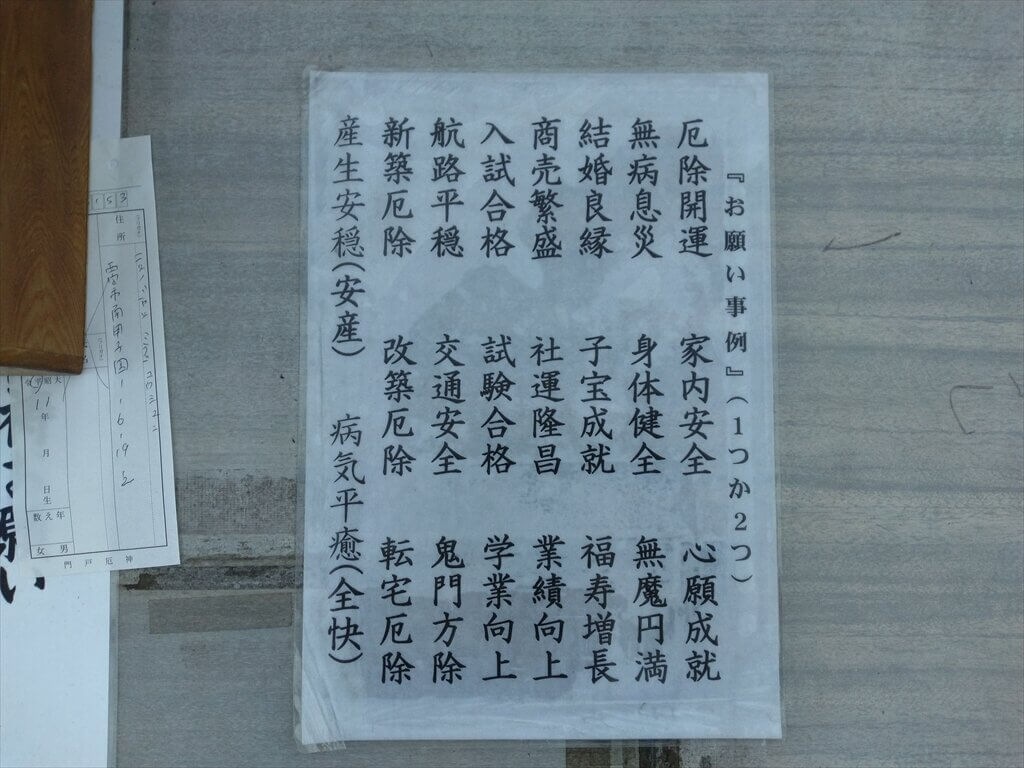 『お願い事例』(1つか2つ)
厄除開運 家内安全 心願成就
無病息災 身体健全 無魔円満
結婚良縁 子宝成就 福寿増長
商売繁盛 社運隆昌 業績向上
入試合格 試験合格 学業向上
航路平穏 交通安全 鬼門方除
新築厄除 改築厄除 転宅厄除
産生安穏(安産) 病気平癒(全快)
住所
年 月 日生
数え年
男 女
門戸厄神